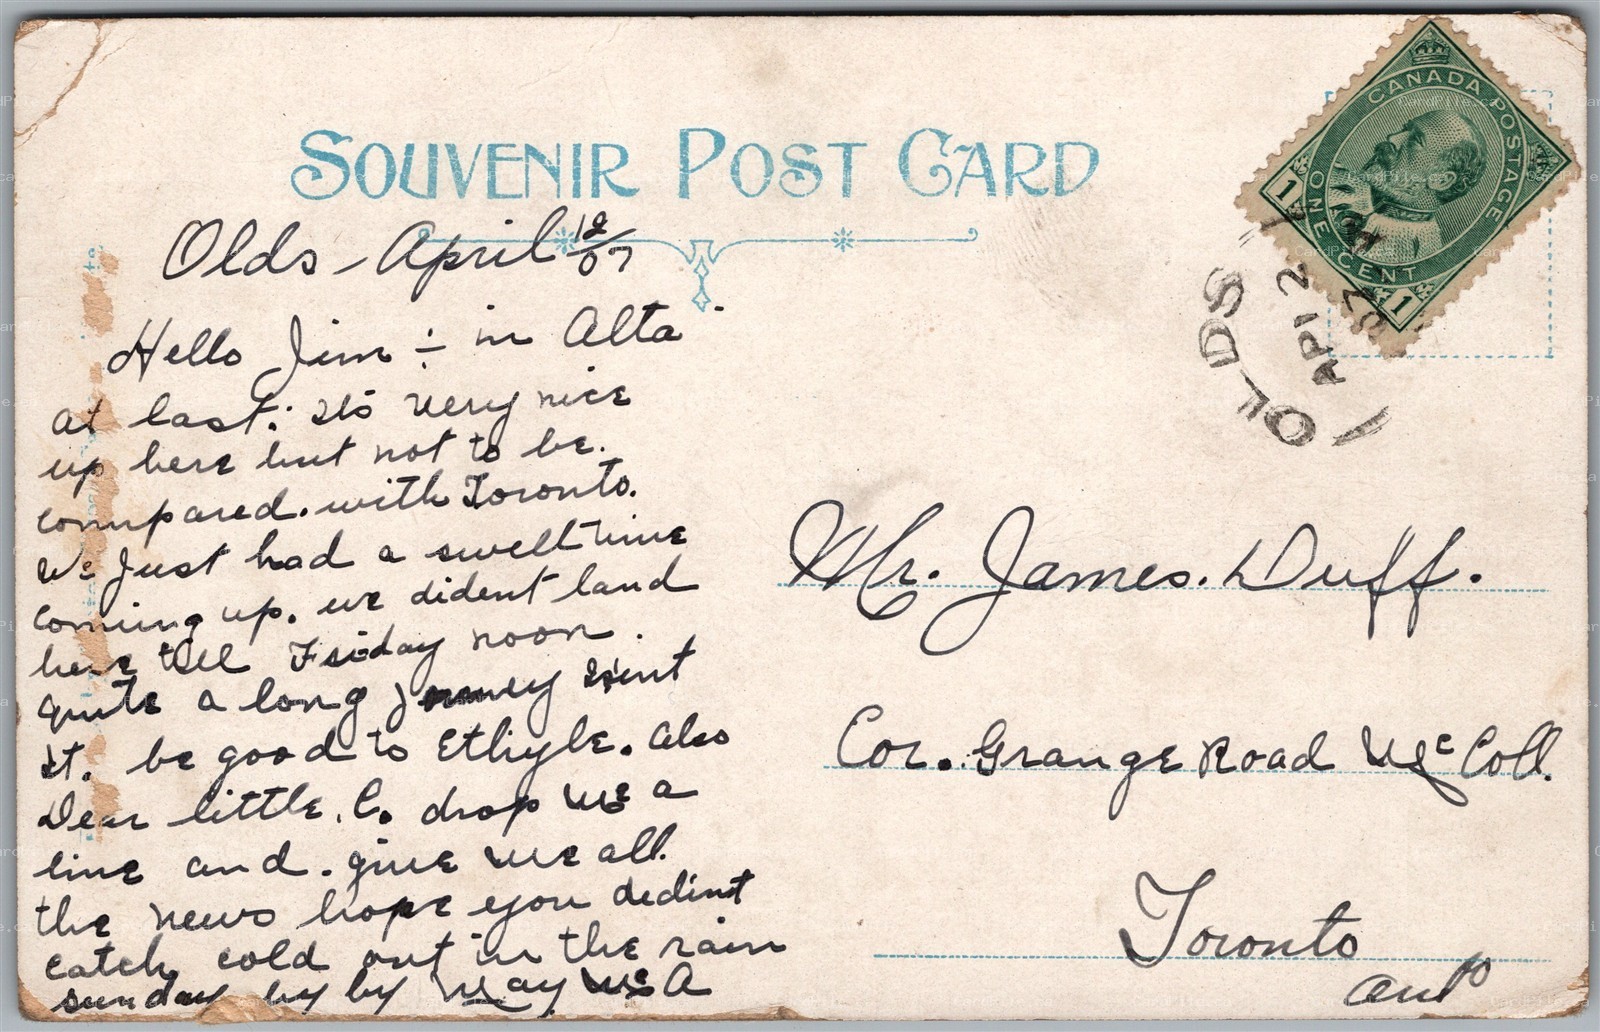 SOUVENIR POST CARD
CANADA POSTAGE
ONE CENT
1 1
OLDS
AP 12
07
Olds - April 12/07
Hello Jim ÷ in Alta
at last. its very nice
up here but not to be.
compared. with Toronto.
We Just had a swell time
coming up. we dident land
here till Friday noon.
quite a long journey isint
it. be good to Ethyle. also
Dear little. C. drop me a
line and. give me all.
the news hope you dedint
catch cold out in the rain
sunday by by May McA
Mr. James. Duff.
Cor. Grange Road McCall.
Toronto
Onto